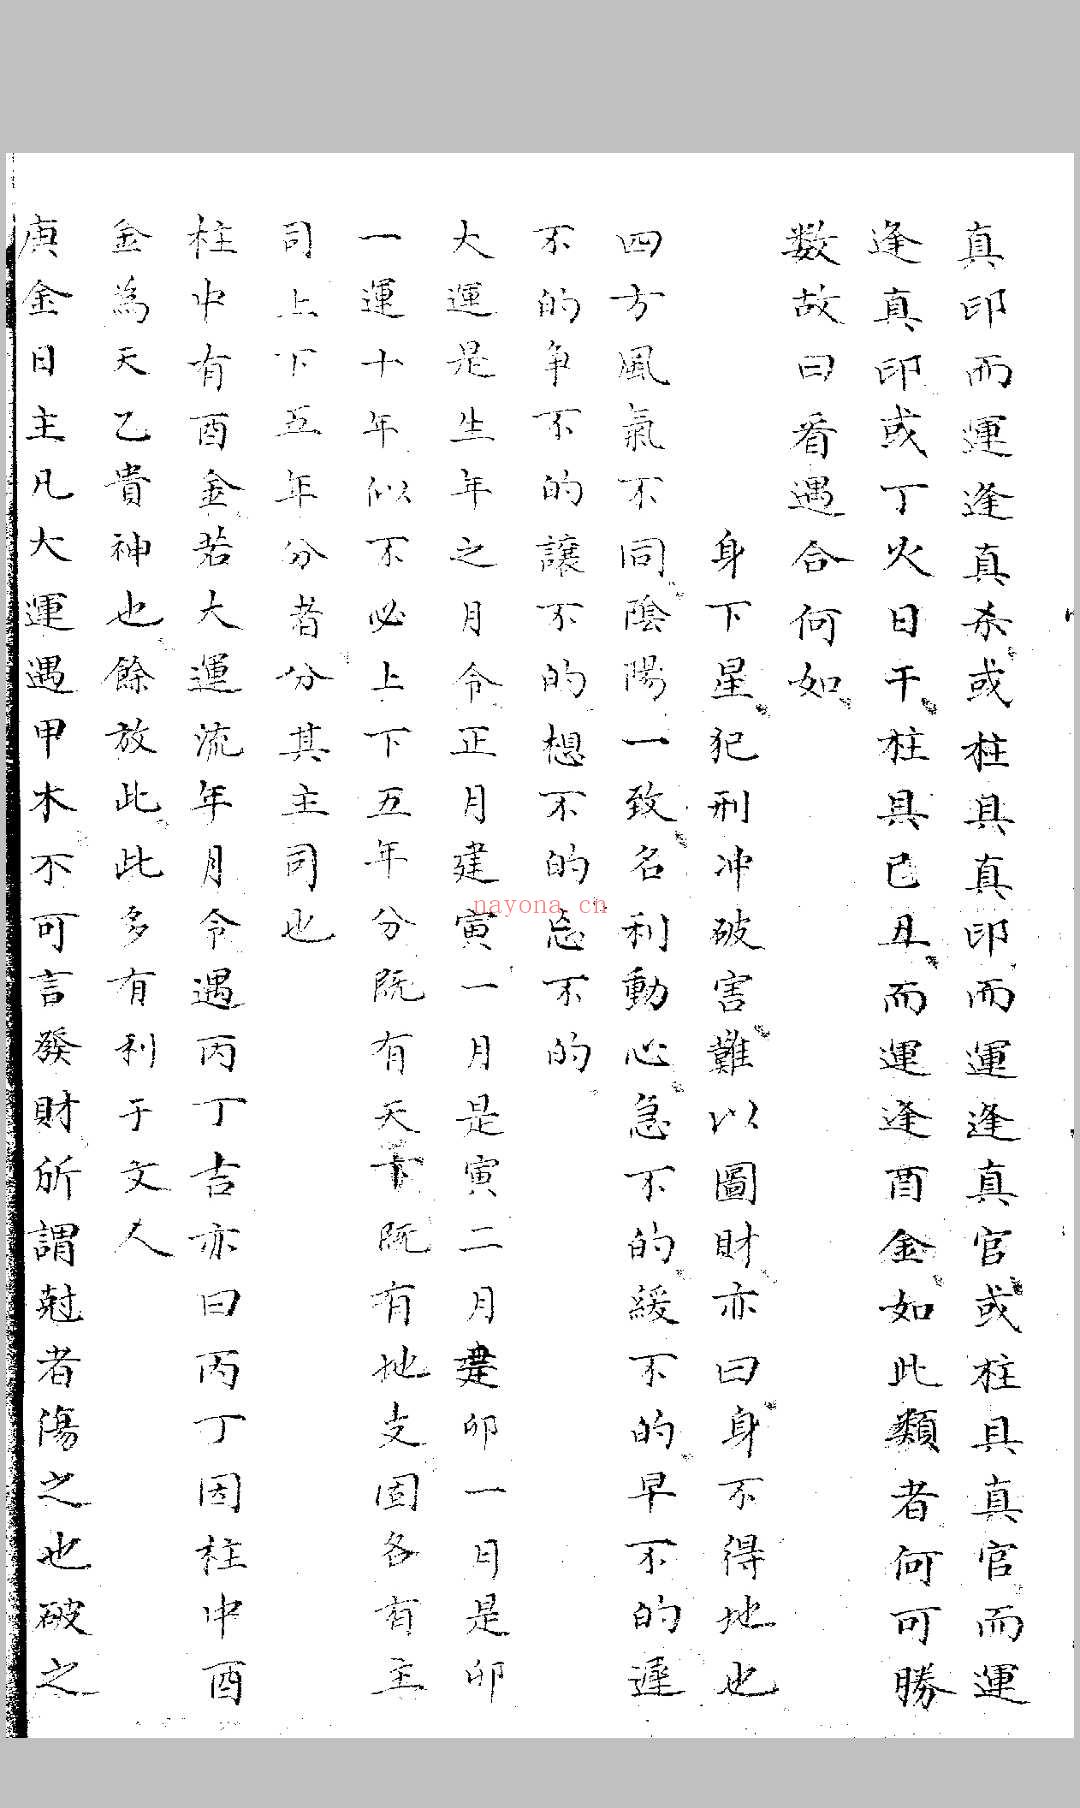 真印而運逢真杀或柱具真印而運逢真官或柱具真官而運
逢真印或丁火日干柱具己丑而運逢酉金如此類者何可勝
数故曰看遇合何如
身下星犯刑冲破害難以圖財亦曰身不得地也
四方風氣不同陰陽一致名利動心急不的緩不的早不的遲
不的争不的讓不的想不的忘不的
大運是生年之月令正月建寅一月是寅二月建卯一月是卯
一運十年似不必上下五年分既有天干既有地支固各有主
司上下五年分者分其主司也
柱中有酉金若大運流年月令遇丙丁吉亦曰丙丁因柱中酉
金為天乙貴神也餘放此此多有利于文人
庚金日主凡大運遇甲木不可言發財所謂尅者傷之也破之
nayona.cn